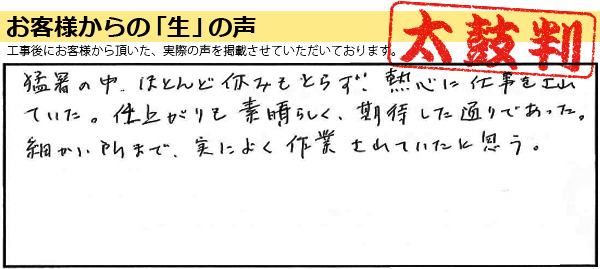 お客様からの「生」の声
工事後にお客様から頂いた、実際の声を掲載させていただいております。
太鼓判
猛暑の中、ほとんど休みもとらず、熱心に仕事をされ
ていた。仕上がりも素晴らしく、期待した通りであった。
細かい所まで、実によく作業されていたと思う。